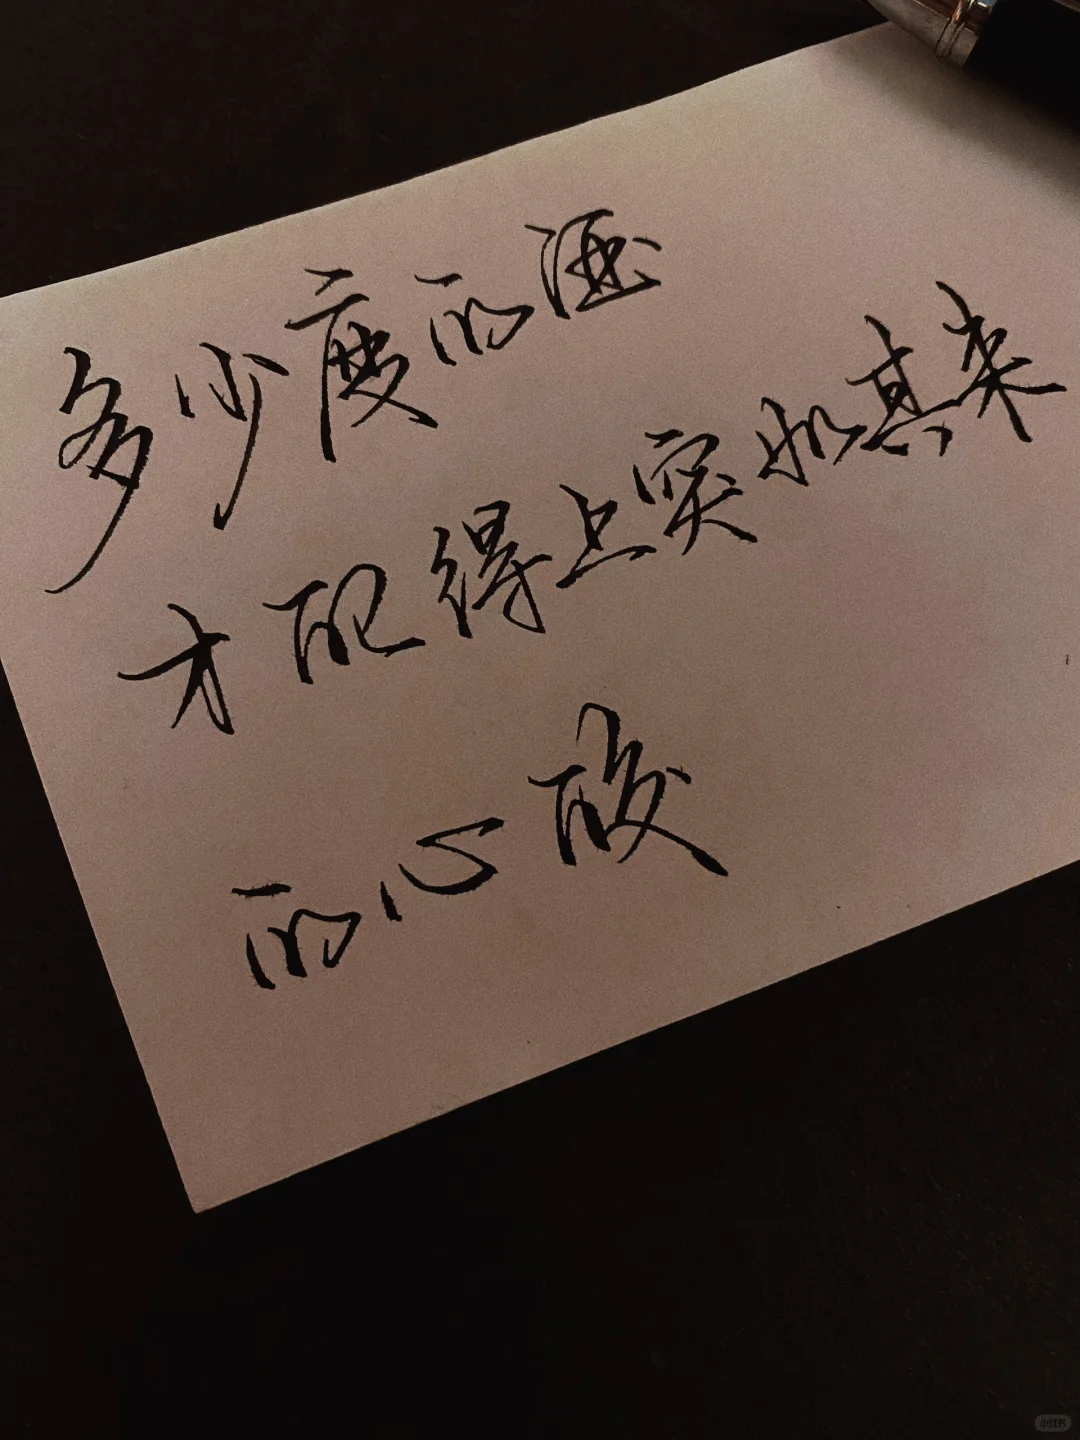 多少度的酒
才配得上突如其来
的心酸
小红书